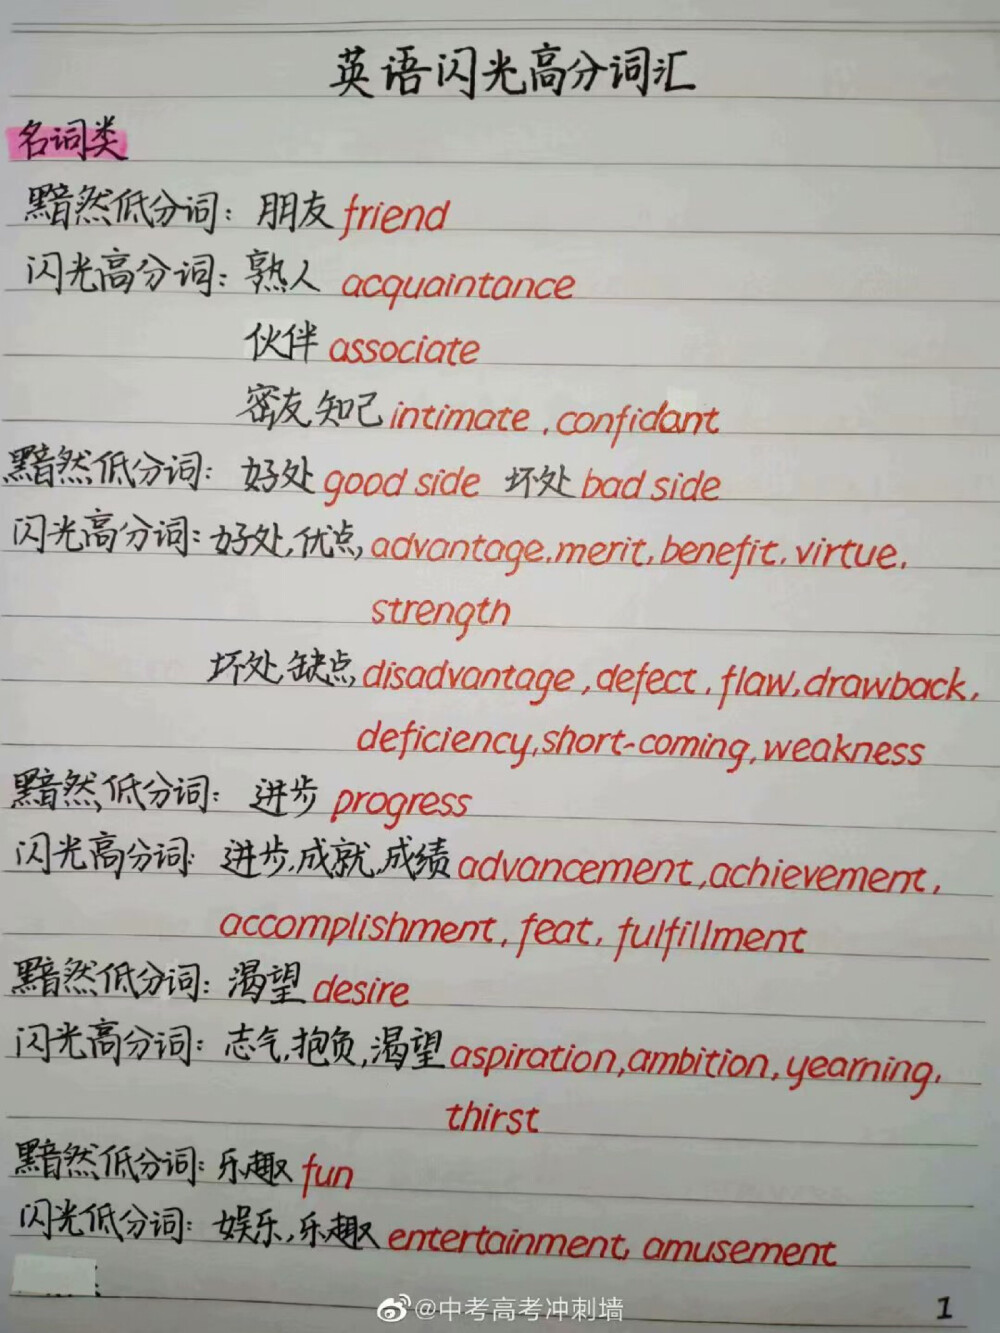 英语闪光高分词汇
名词类
黯然低分词：朋友 friend
闪光高分词：熟人 acquaintance
伙伴 associate
密友,知己 intimate，confidant
黯然低分词：好处 good side 坏处 bad side
闪光高分词：好处,优点,advantage,merit,benefit,virtue,
strength
坏处,缺点,disadvantage,defect,flaw,drawback,
deficiency,short-coming,weakness
黯然低分词：进步 progress
闪光高分词：进步,成就,成绩 advancement,achievement,
accomplishment,feat,fulfillment
黯然低分词：渴望 desire
闪光高分词：志气,抱负,渴望 aspiration,ambition,yearning,
thirst
黯然低分词：乐趣 fun
闪光低分词：娱乐,乐趣 entertainment,amusement
@中考高考冲刺墙
1